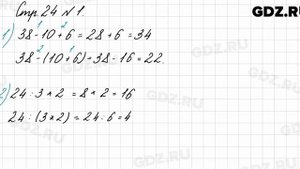 Стр. 24 № 1.
GDZ.RU
1) 38 - 10 + 6 = 28 + 6 = 34
38 - (10 + 6) = 38 - 16 = 22.
2) 24 : 3 * 2 = 8 * 2 = 16
24 : (3 * 2) = 24 : 6 = 4